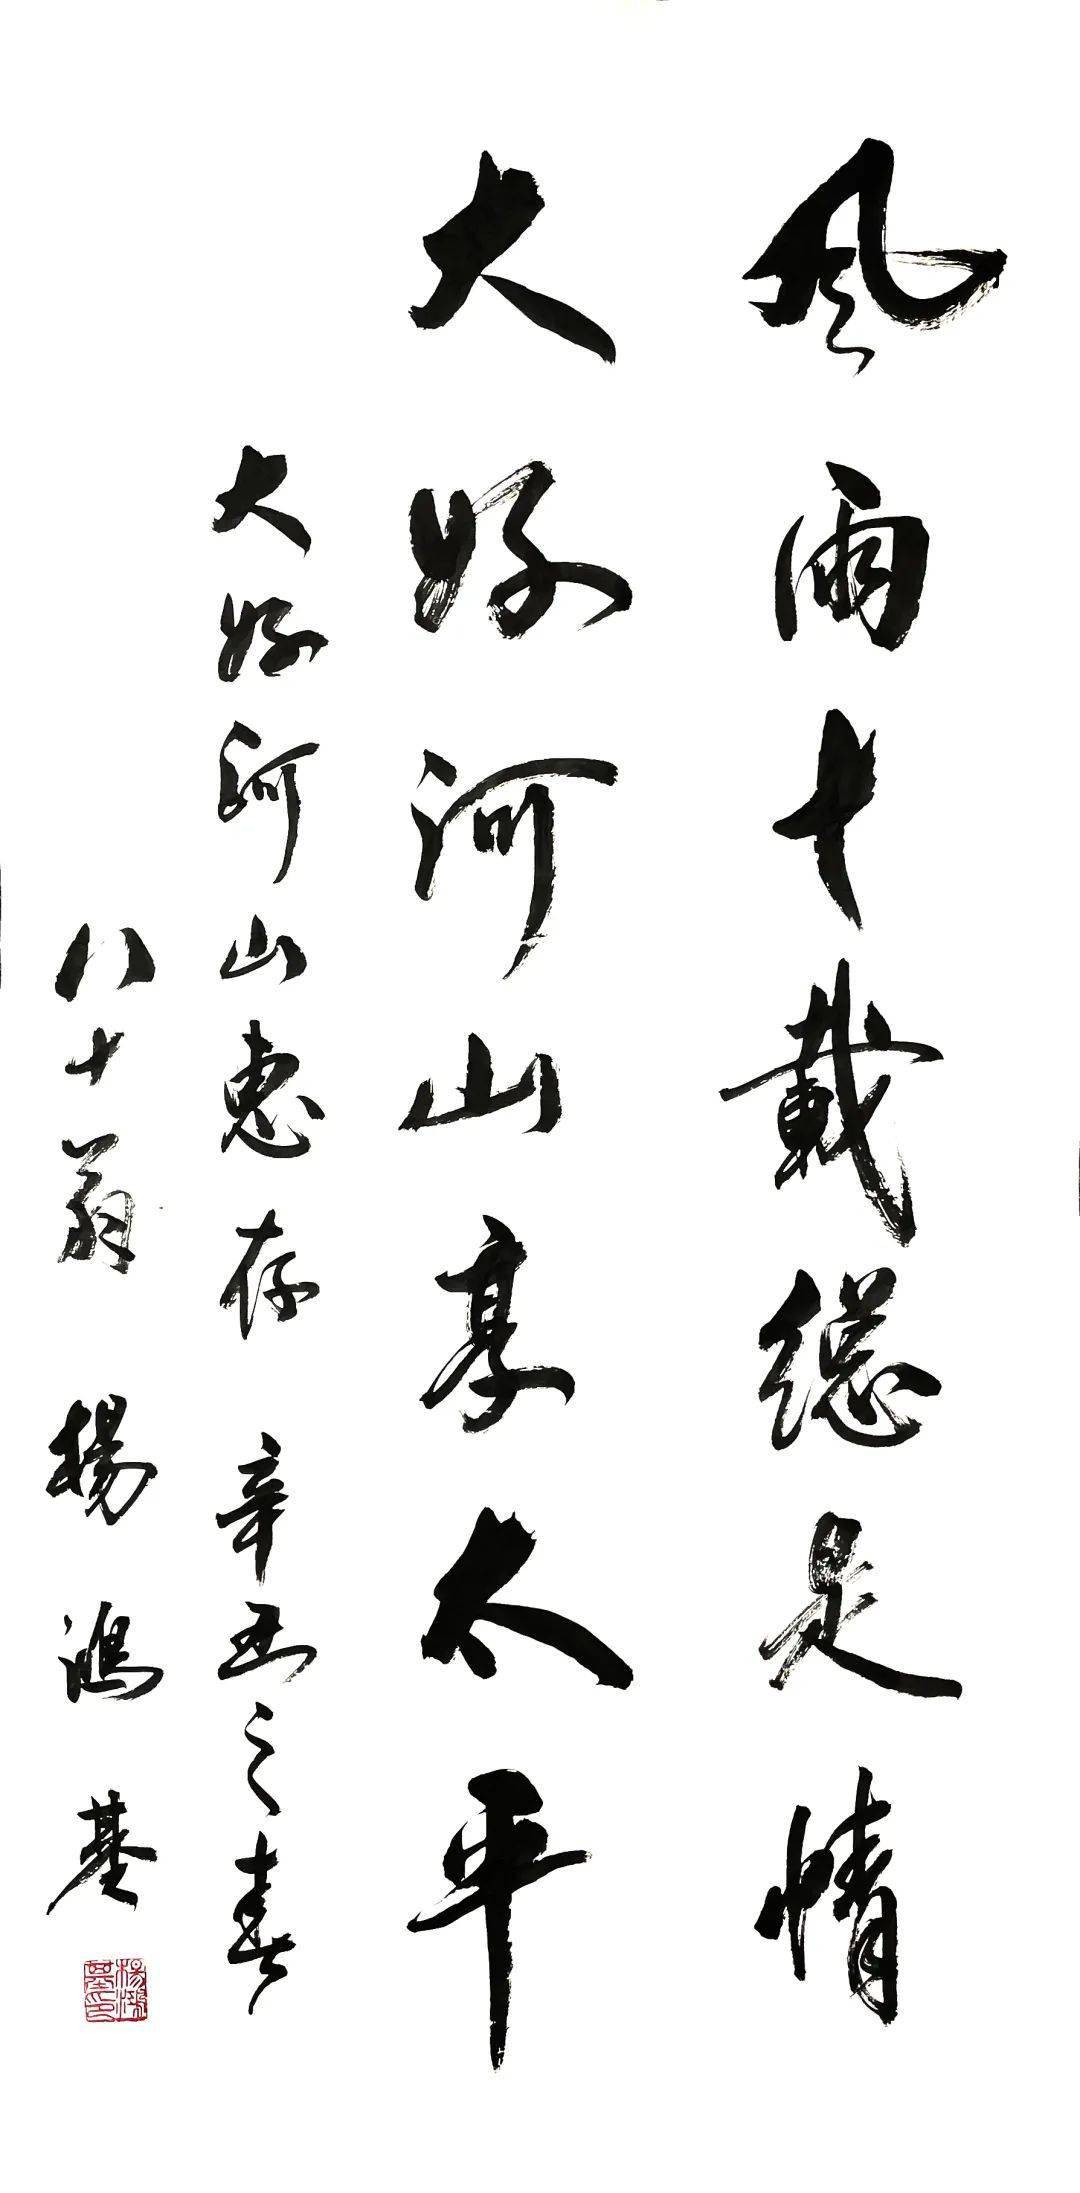 風雨十載總是情
大好河山享太平
大好河山惠存 辛丑之春
八十翁 楊鴻基
楊鴻基印